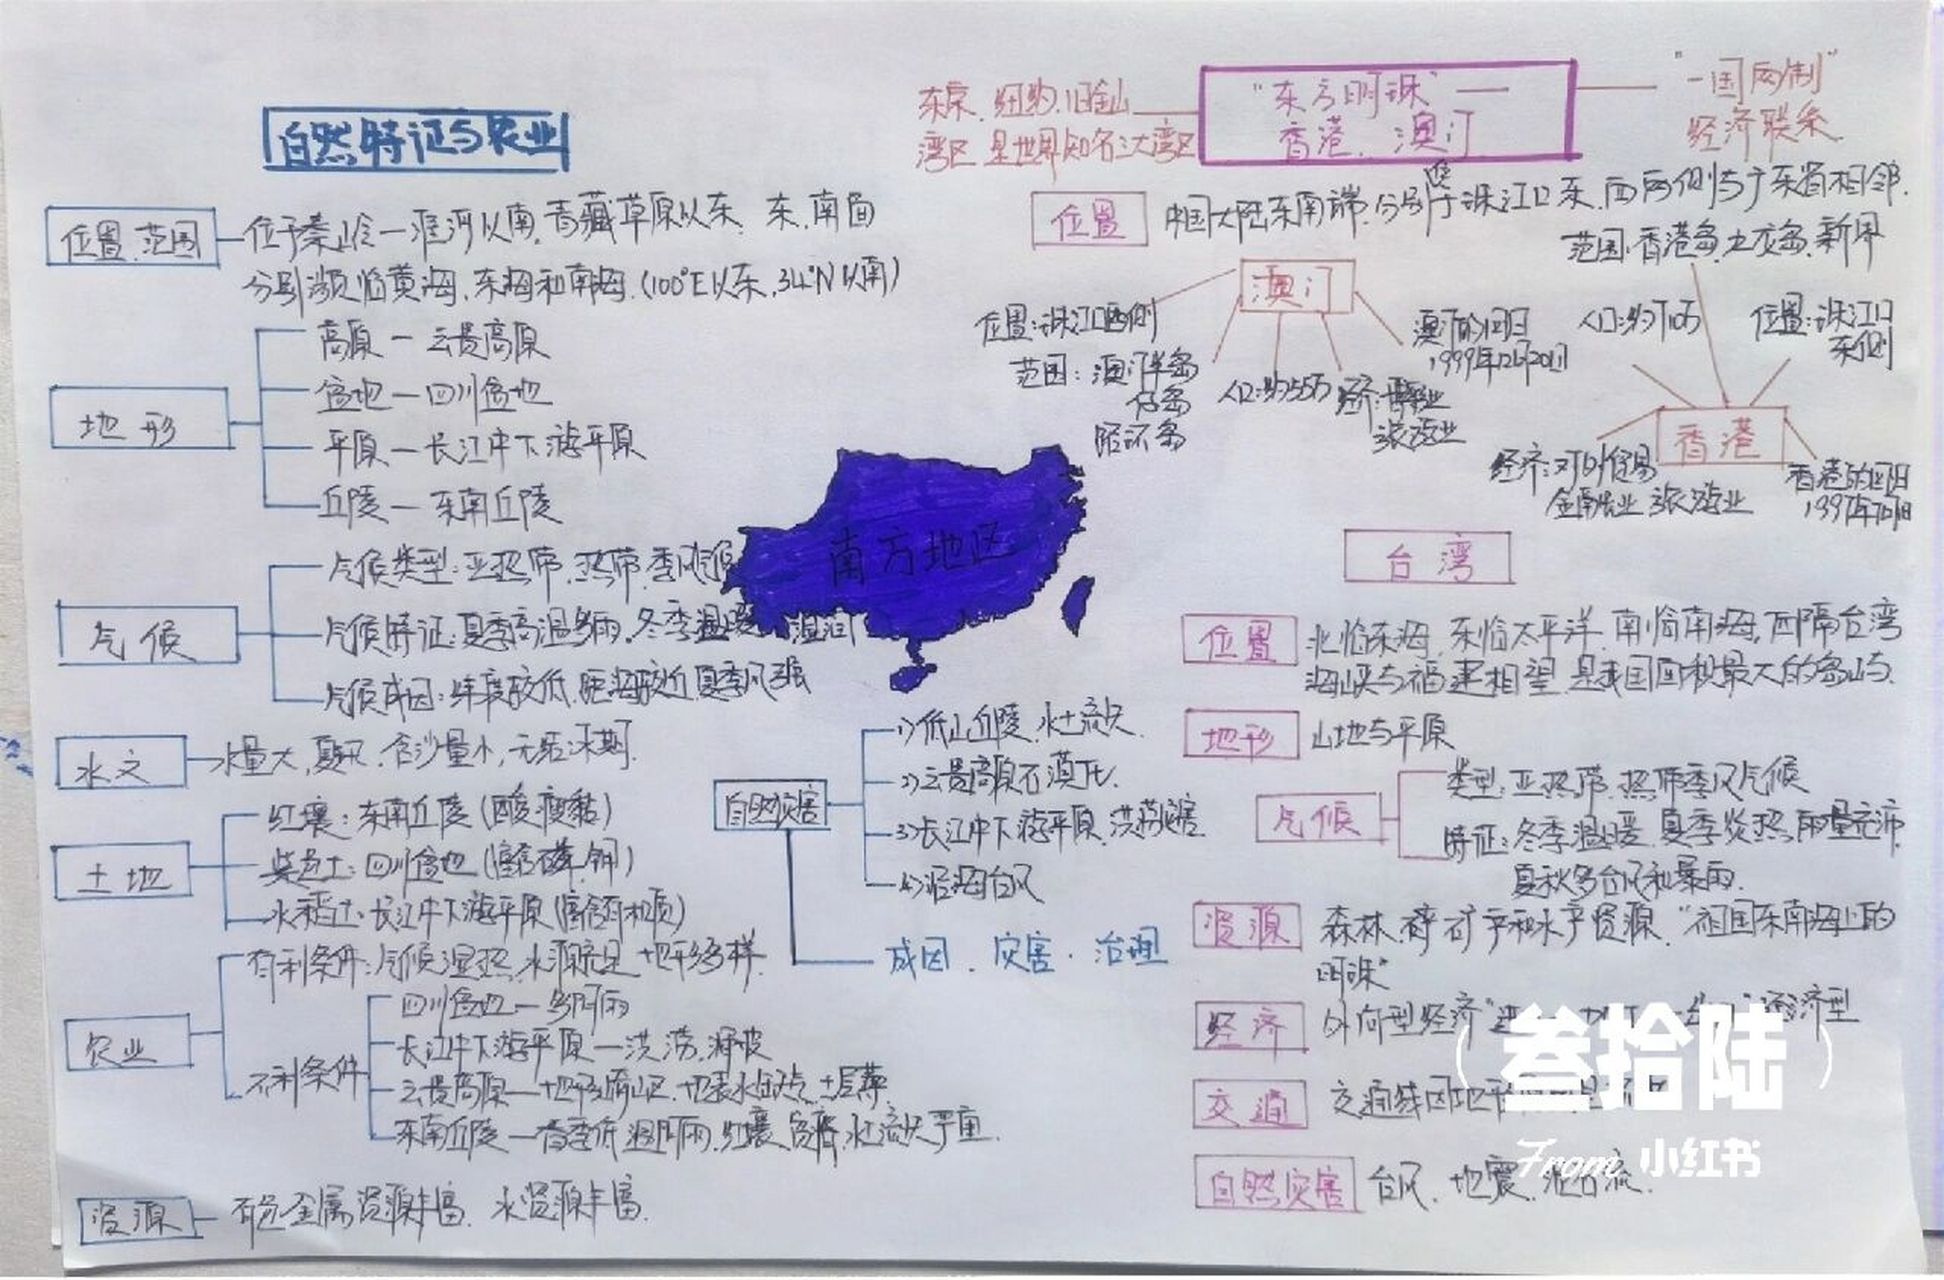 自然特征与农业
位置、范围
位于秦岭—淮河以南,青藏草原以东、东、南面
分别濒临黄海、东海和南海.(100°E以东,34°N以南)
地形
高原—云贵高原
盆地—四川盆地
平原—长江中下游平原
丘陵—东南丘陵
气候
气候类型:亚热带、热带季风气候
气候特征:夏季高温多雨,冬季温暖湿润
气候成因:纬度较低,距海较近,夏季风强
水文
水量大,夏汛,含沙量小,无结冰期.
土地
红壤:东南丘陵(酸、瘦、黏)
紫色土:四川盆地(富含磷、钾)
水稻土:长江中下游平原(富含有机质)
农业
有利条件:气候湿热,水源充足,地形多样.
不利条件
四川盆地—多阴雨
长江中下游平原—洪涝、
云贵高原—地形崎岖,地表水缺乏,土层薄.
东南丘陵—春季低温阴雨,红壤贫瘠,水土流失严重.
资源
有色金属资源丰富、水资源丰富.
南方地区
自然灾害
1)低山丘陵、水土流失.
2)云贵高原石漠化.
3)长江中下游平原、洪涝灾害
4)沿海台风
成因、灾害、治理
东京、纽约、旧金山
湾区是世界知名三大湾区
"东方明珠"——
香港、澳门
"一国两制"
经济联系
位置
中国大陆东南端,分别位于珠江口东、西两侧与广东省相邻.
澳门
位置:珠江口西侧
范围:澳门半岛
仔岛
路环岛
人口:约55万
经济:博彩业
旅游业
澳门的回归
1999年12月20日
范围:香港岛、九龙岛、新界
人口:约710万
位置:珠江口
东侧
香港
经济:对外贸易
金融业 旅游业
香港的回归
1997年7月1日
台湾
位置
北临东海,东临太平洋,南临南海,西隔台湾
海峡与福建相望,是我国面积最大的岛屿.
地形
山地与平原
气候
类型:亚热带、热带季风气候
特征:冬季温暖,夏季炎热,雨量充沛,
夏秋多台风和暴雨.
资源
森林、矿产和水产资源."祖国东南海上的
明珠"
经济
外向型经济 经济型
交通
交通线因地
自然灾害
台风、地震、泥石流.
(叁拾陆)
From 小红书